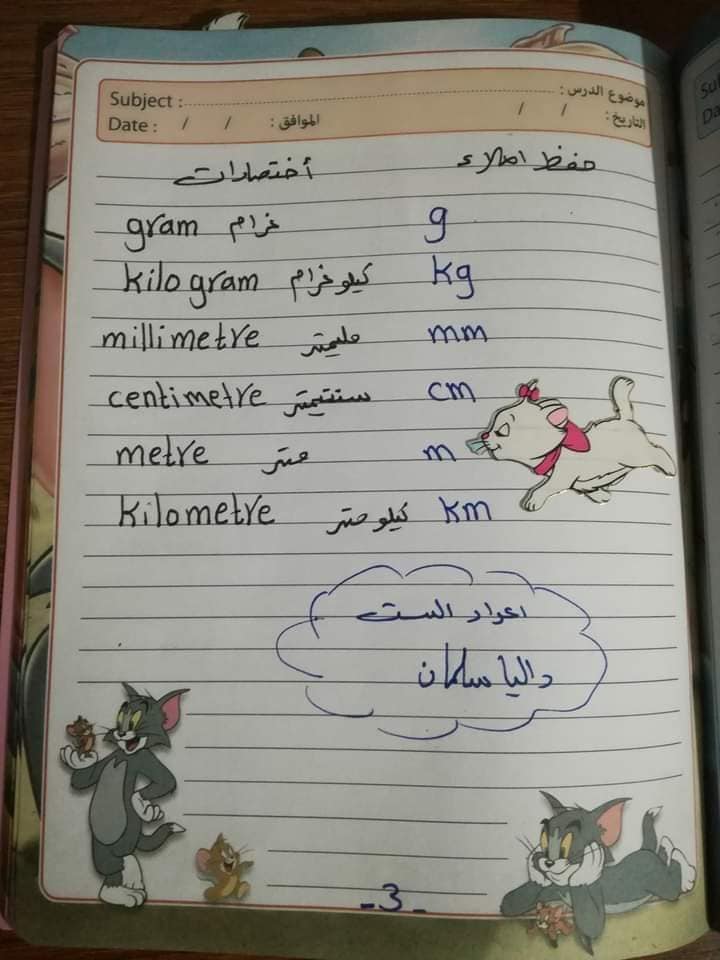 Subject : موضوع الدرس :
Date : / / الموافق : / / التاريخ :
حفظ املاء أختصارات
gram غرام g
kilogram كيلوغرام kg
millimetre مليمتر mm
centimetre سنتيمتر cm
metre متر m
kilometre كيلومتر km
اعداد الست
داليا سلمان
-3-